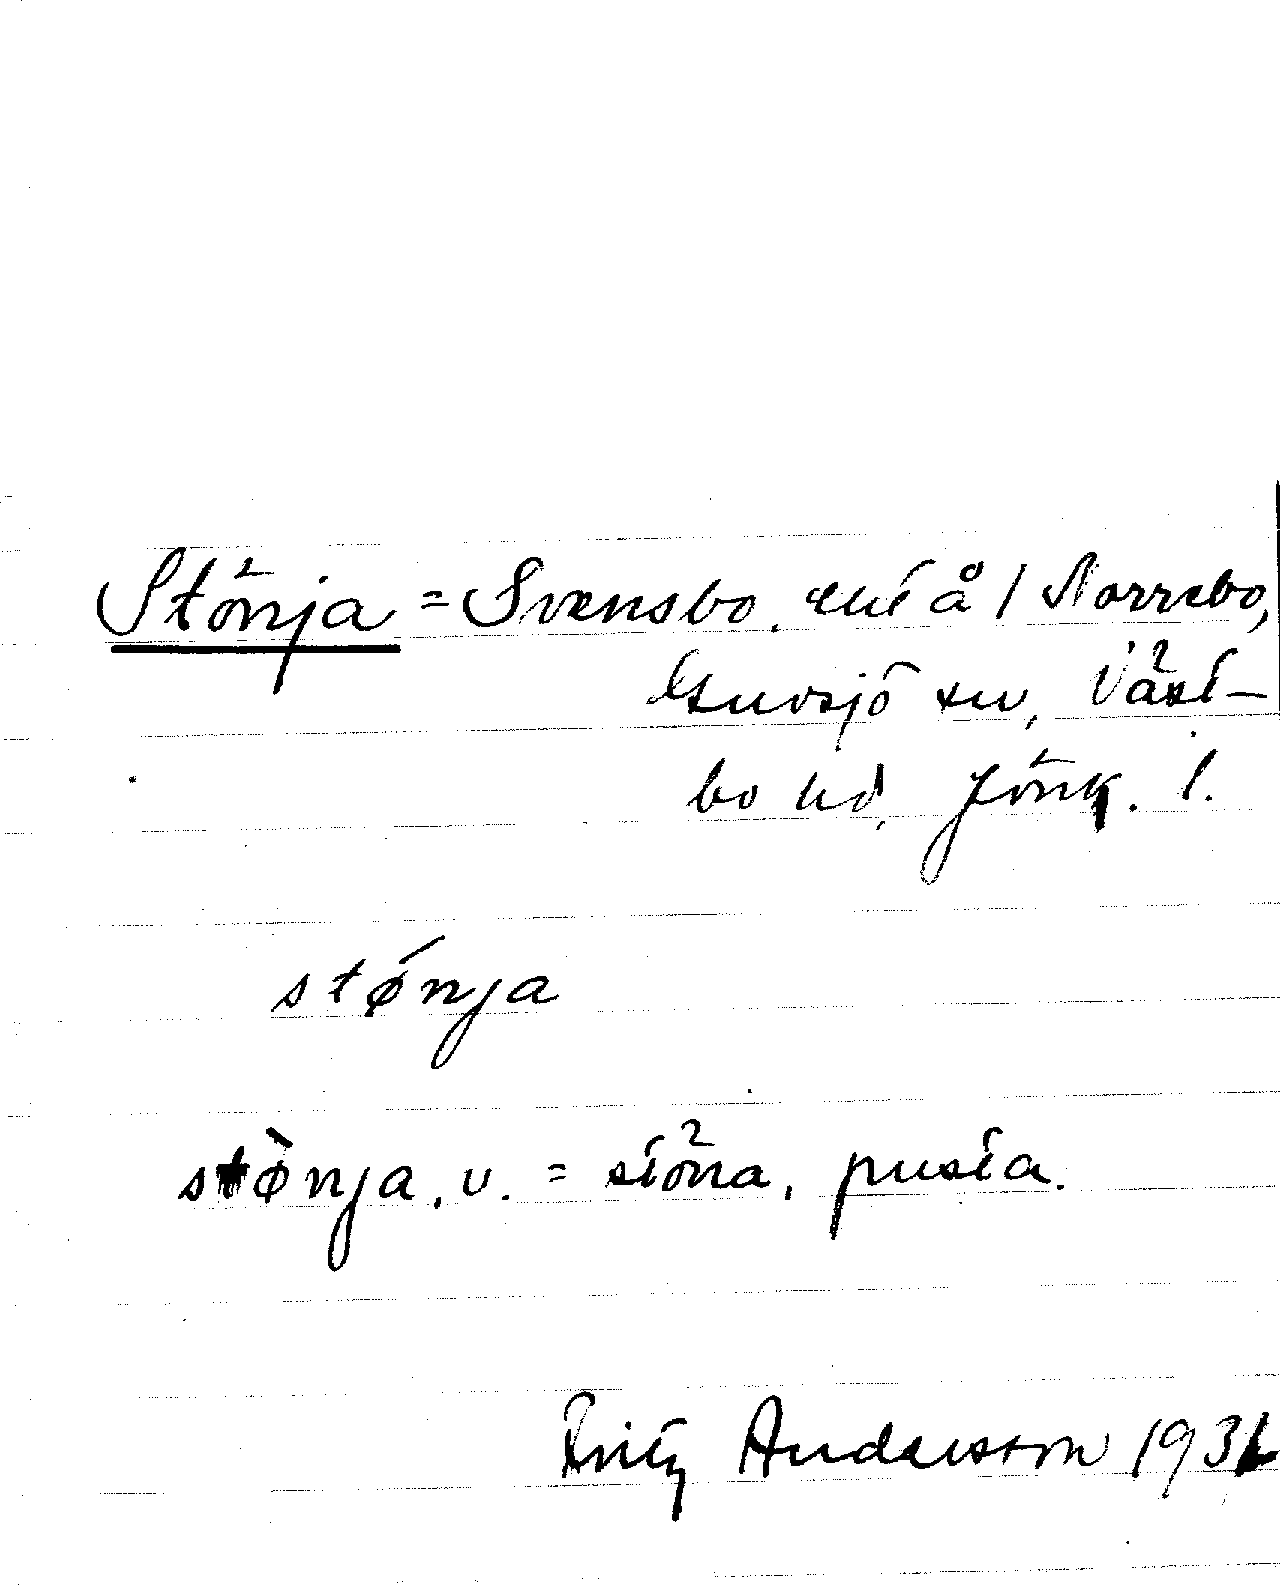 Stönja = Svensbo, ett å / Norrebo,
Gursjö sn, Väst-
bo hd, Jönk. l.
stǿnja
stø̀nja, v. = stöna, pusta.
Fritz Andersson 1931